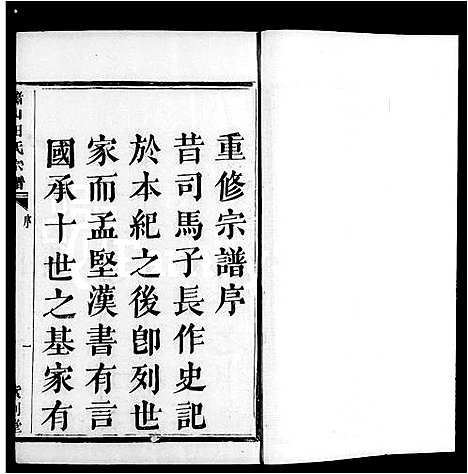 重修宗譜序
昔司馬子長作史記
於本紀之後卽列世
家而孟堅漢書有言
國承十世之基家有
蕭山田氏宗譜
序
一